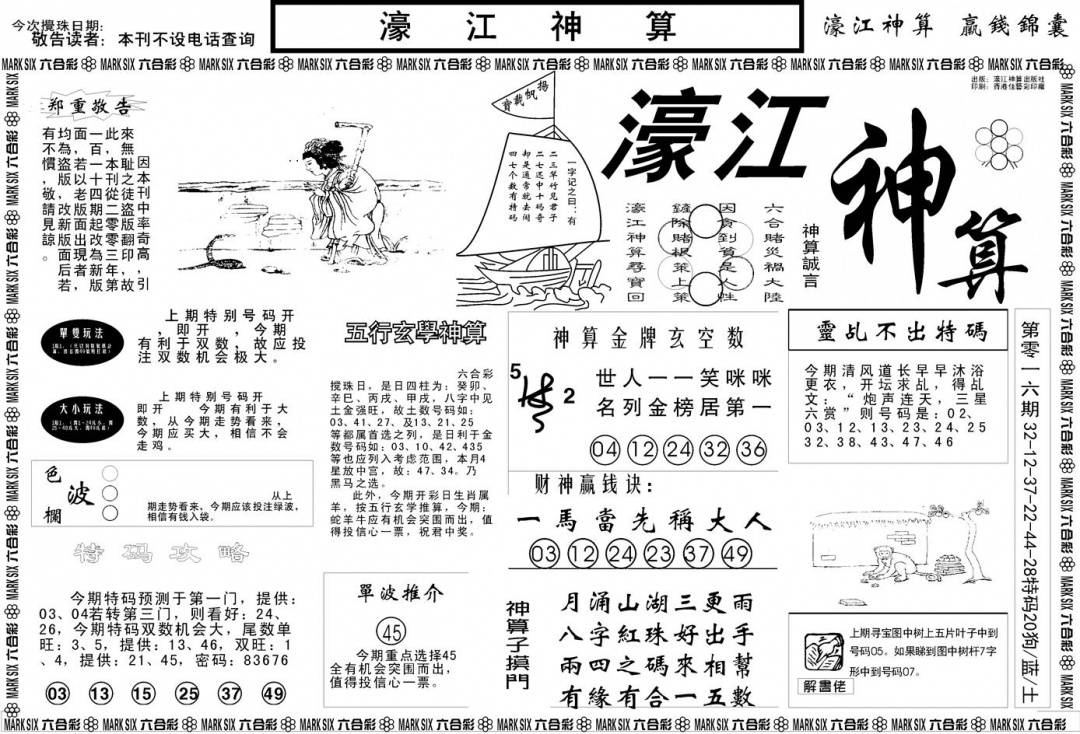 今次攪珠日期：
敬告读者：本刊不设电话查询
濠江神算
濠江神算 贏錢錦囊
MARK SIX 六合彩
出版：濠江神算出版社
印刷：香港佳藝彩印廠
郑重敬告
因本刊中率奇高，引
來無恥之徒盜翻印，故
此，本刊從二零零三年第
一百一十四期起改為新版，
面若以老版面出現，
均為盜版，敬請見諒。
有不慣
揚帆載寶
一字记之曰：有
二三草竹见君子
二七还中十码奇
却是通常就去闹
四七个数有特码
濠江神算
六合賭災禍大陸
因貪到貧是人性
鏟除賭根策上策
濠江神算尋寶回
神算誠言
單雙玩法
上期特别号码开
，即开　，今期
有利于双数，故应投
注双数机会极大。
大小玩法
上期特别号码开
即开　　今期有利于大
数，从今期走势看来，
今期应买大，相信不会
走鸡。
色波欄
从上
期走势看来，今期应该投注绿波，
相信有钱入袋。
特码攻略
今期特码预测于第一门，提供：
03、04若转第三门，则看好：24、
26，今期特码双数机会大，尾数单
旺：3、5，提供：13、46，双旺：1
、4，提供：21、45，密码：83676
03 13 15 25 37 49
五行玄學神算
六合彩
搅珠日，是日四柱为：癸卯、
辛巳、丙戌、甲戌，八字中见
土金强旺，故土数号码如：
03、41、27、及13、21、25
等都属首选之列，是日利于金
数号码如：03、10、42、435
等也应列入考虑范围，本月4
星放中宫，故：47、34。乃
黑马之选。
此外，今期开彩日生肖属
羊，按五行玄学推算，今期：
蛇羊牛应有机会突围而出，值
得投信心一票，祝君中奖。
單波推介
45
今期重点选择45
全有机会突围而出，
值得投信心一票。
神算金牌玄空数
5
2
世人一一笑咪咪
名列金榜居第一
04 12 24 32 36
财神赢钱诀：
一馬當先稱大人
03 12 24 23 37 49
神算子摸門
月涌山湖三更雨
八字紅珠好出手
兩四之碼來相幫
有緣有合一五數
靈乩不出特碼
今期清风道长早早沐浴
更衣，开坛求乩，得乩
文：“炮声连天，三星
六赏”则号码是：02、
03、12、13、23、24、25
32、38、43、47、46
上期寻宝图中树上五片叶子中到
号码05。如果睇到图中树杆7字
形中到号码07。
解畫佬
第零一六期32-12-37-22-44-28特码20狗/蓝/土